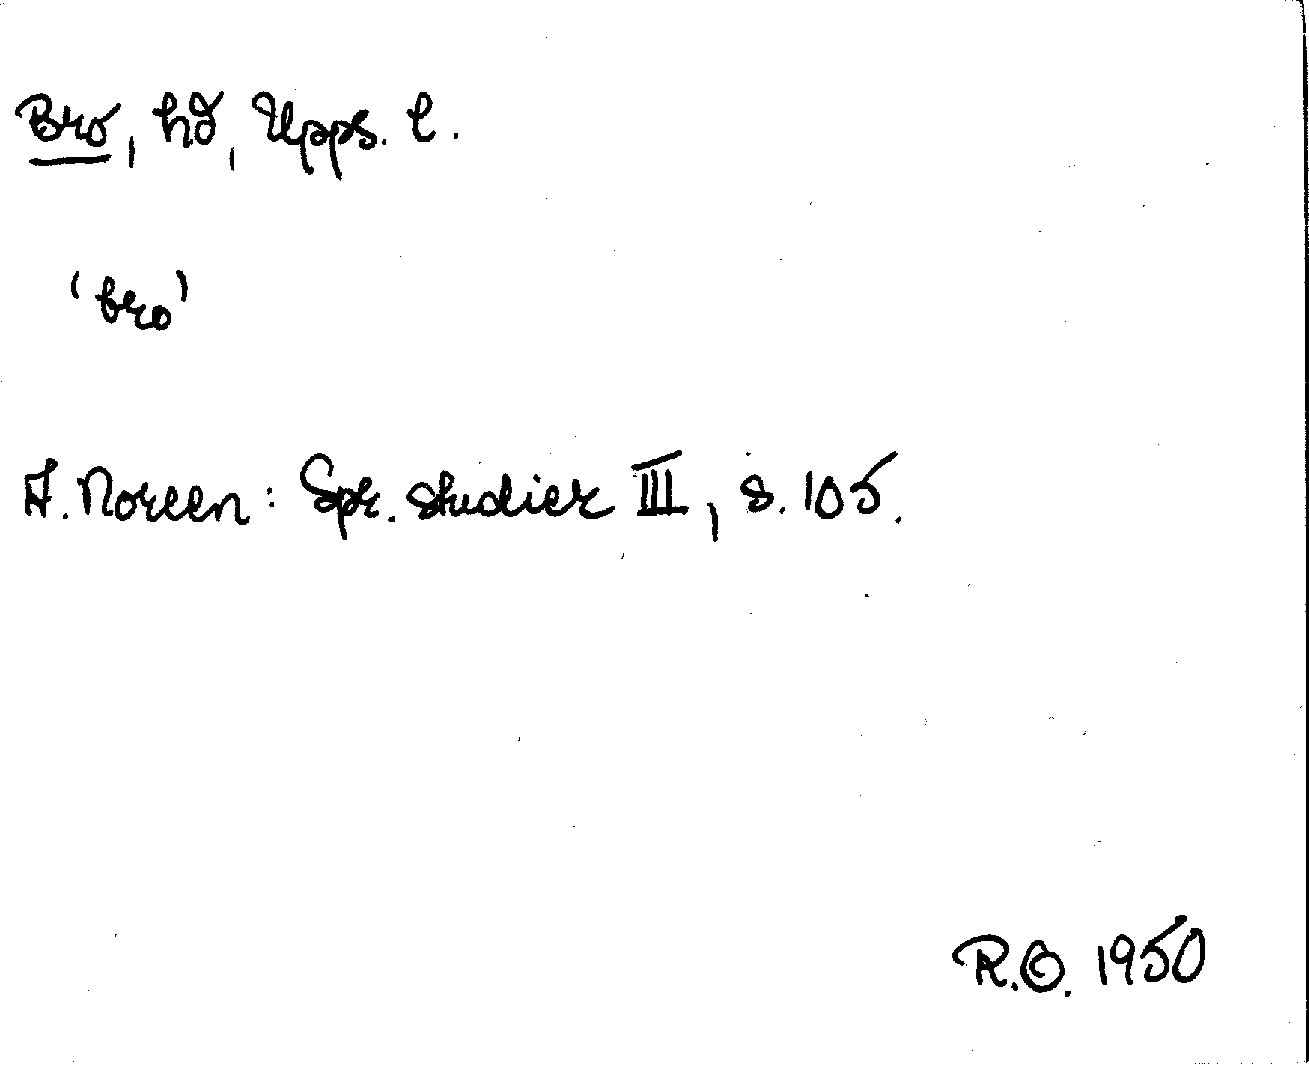 Bro, hd, Upps. l.
'bro'
A. Noreen: Spr. studier III, s. 105.
R.O. 1950